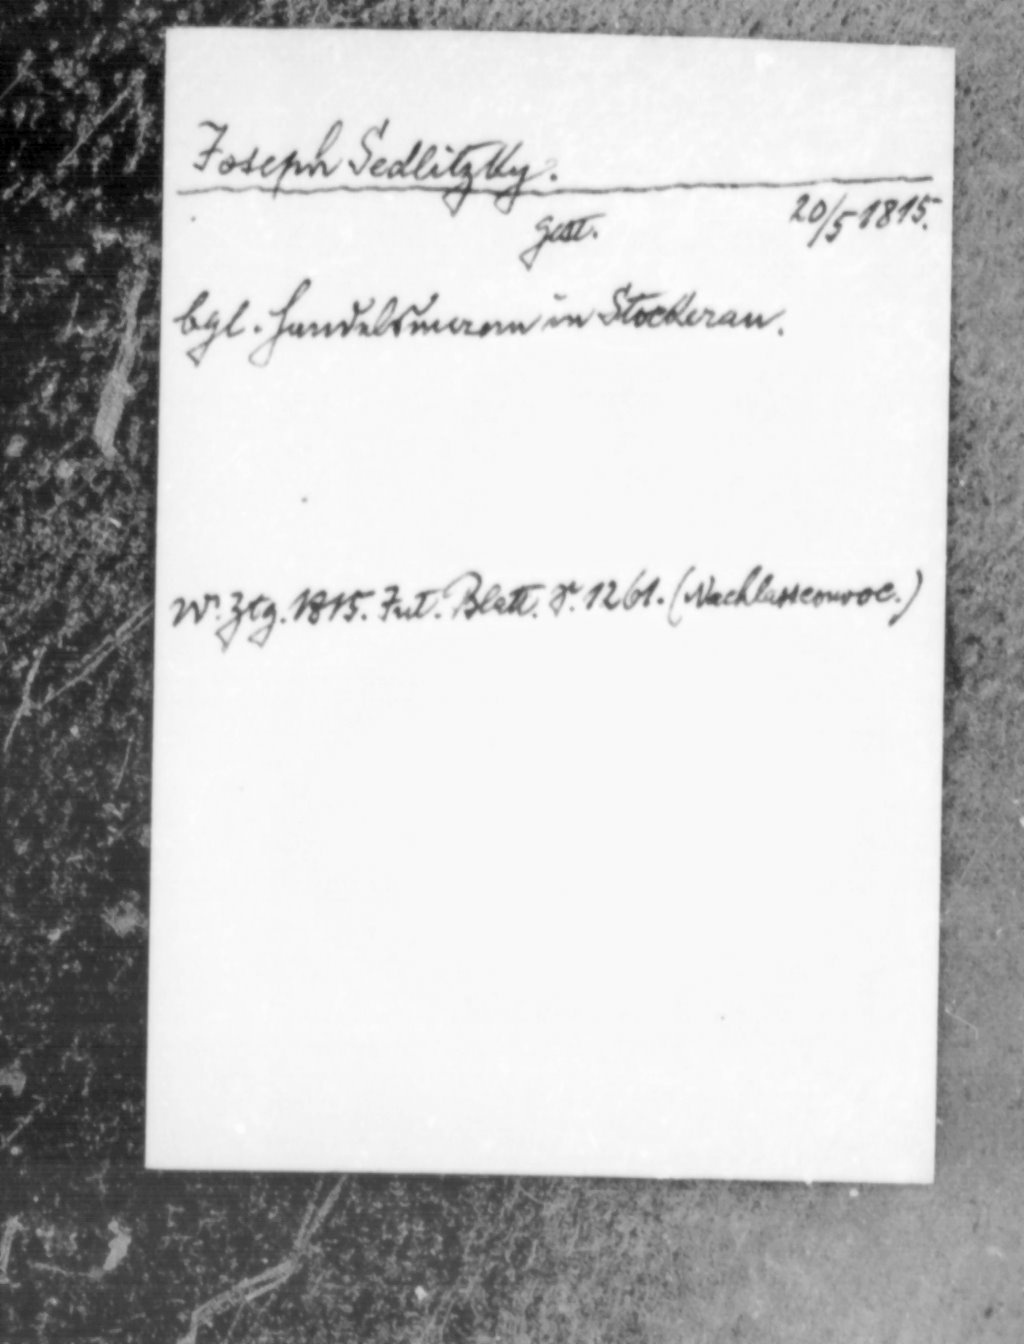 Joseph Sedlitzky.
gest. 20/5 1815.
bgl. Handelsmann in Stockerau.
W. Ztg. 1815. Int. Blatt. S. 1261. (Nachlassconvoc.)